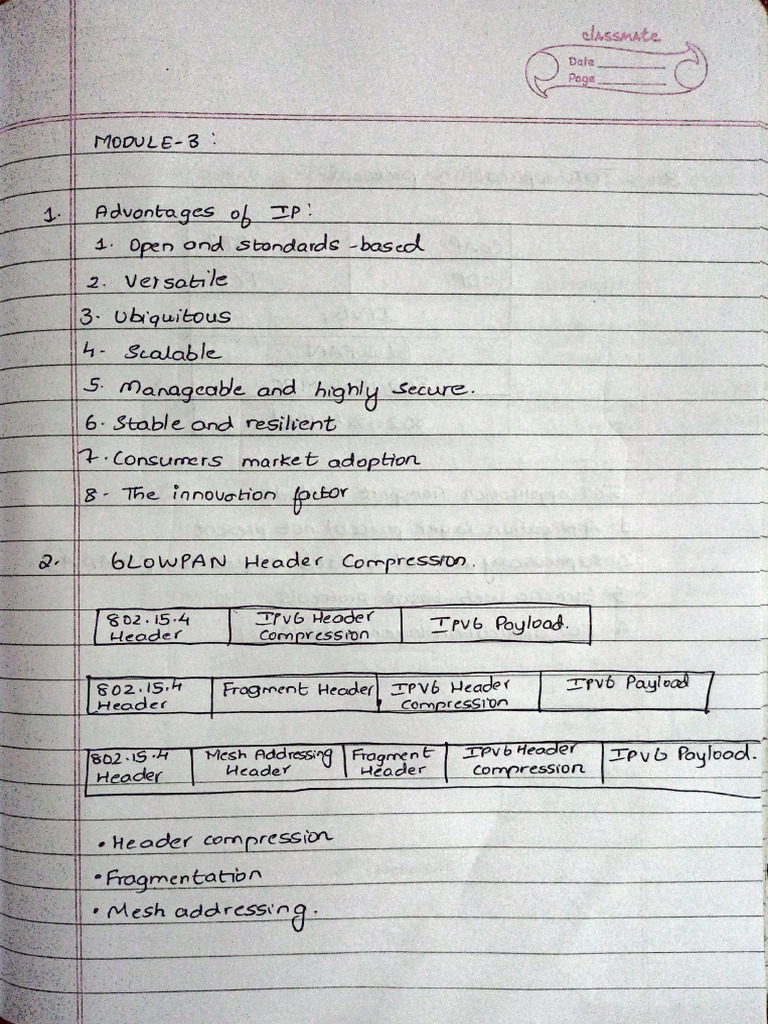 classmate
Date
Page
MODULE-3 :
1. Advantages of IP:
1. Open and standards-based
2. Versatile
3. Ubiquitous
4- Scalable
5. Manageable and highly secure.
6. Stable and resilient
7. Consumers market adoption
8- The innovation factor
2. 6LOWPAN Header Compression.
802.15.4 Header IPV6 Header Compression IPV6 Payload.
802.15.4 Header Fragment Header IPV6 Header Compression IPV6 Payload
802.15.4 Header Mesh Addressing Header Fragment Header IPV6 Header compression IPV6 Payload.
• Header compression
• Fragmentation
• Mesh addressing.